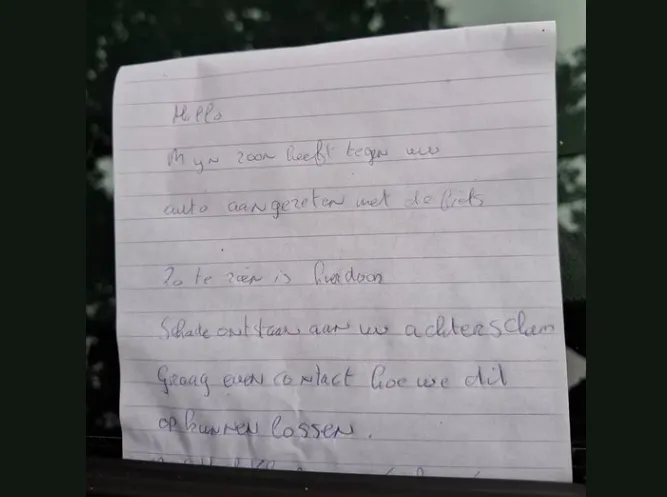 Hallo
Mijn zoon heeft tegen uw
auto aangereten met de fiets
Zo te zien is hierdoor
Schade ontstaan aan uw achterscherm
Graag even contact hoe we dit
op kunnen lossen.